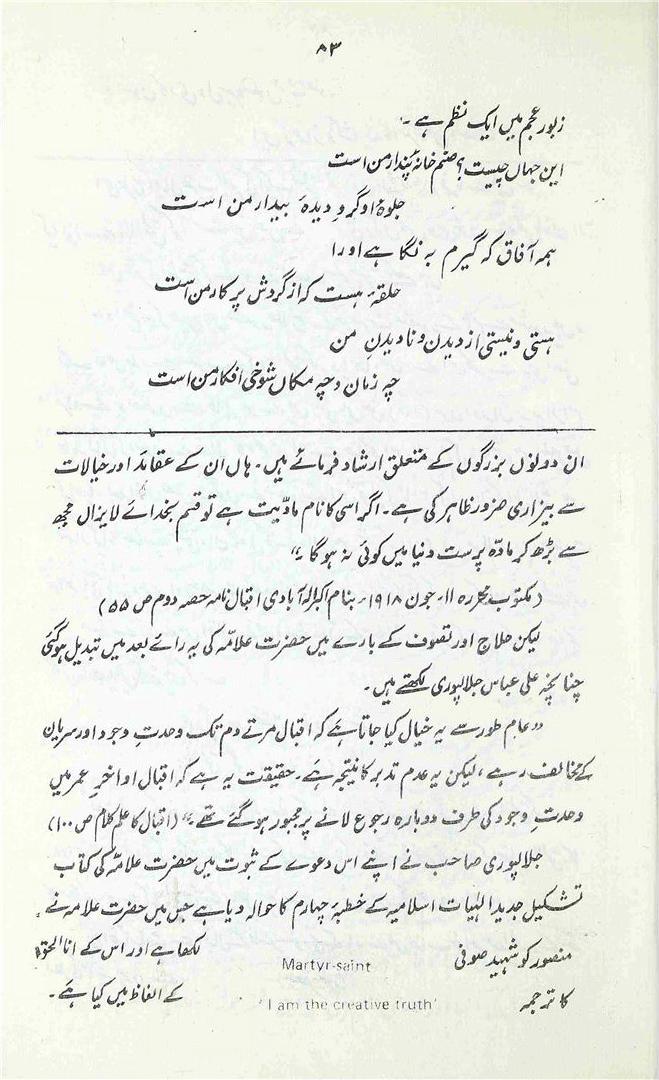 ۸۳
زبور عجم میں ایک نظم ہے ۔
این جہاں چیست؟ صنم خانۂ پندار من است
جلوۂ او گرو دیدۂ بیدار من است
ہمہ آفاق کہ گیرم بہ نگا ہے او را
حلقۂ ہست کہ از گردش پرکار من است
ہستی و نیستی از دیدن و نادیدنِ من
چہ زمان و چہ مکاں شوخی افکار من است
ان دونوں بزرگوں کے متعلق ارشاد فرماتے ہیں۔ ہاں ان کے عقائد اور خیالات
سے بیزاری ضرور ظاہر کی ہے۔ اگر اسی کا نام مادّیت ہے تو قسم بخدائے لایزال مجھ
سے بڑھ کر مادّہ پرست دنیا میں کوئی نہ ہوگا ۔"
(مکتوب محررہ ۱۱۔ جون ۱۹۱۸ء بنام اکبر الہ آبادی اقبال نامہ حصہ دوم ص ۵۵)
لیکن حلاج اور تصوف کے بارے میں حضرت علامّہ کی یہ رائے بعد میں تبدیل ہوگئی
چنانچہ علی عباس جلالپوری لکھتے ہیں۔
"عام طور سے یہ خیال کیا جاتا ہے کہ اقبال مرتے دم تک وحدتِ وجود اور سریان
کے مخالف رہے، لیکن یہ عدم تدبر کا نتیجہ ہے۔ حقیقت یہ ہے کہ اقبال اواخرِ عمر میں
وحدتِ وجود کی طرف دوبارہ رجوع لانے پر مجبور ہو گئے تھے۔" (اقبال کا علم کلام ص ۱۰۰)
جلالپوری صاحب نے اپنے اس دعوے کے ثبوت میں حضرت علامّہ کی کتاب
تشکیل جدید الٰہیات اسلامیہ کے خطبۂ چہارم کا حوالہ دیا ہے جس میں حضرت علامہ نے
منصور کو شہید صوفی Martyr-saint لکھا ہے اور اس کے اناالحق
کا ترجمہ 'I am the creative truth' کے الفاظ میں کیا ہے۔